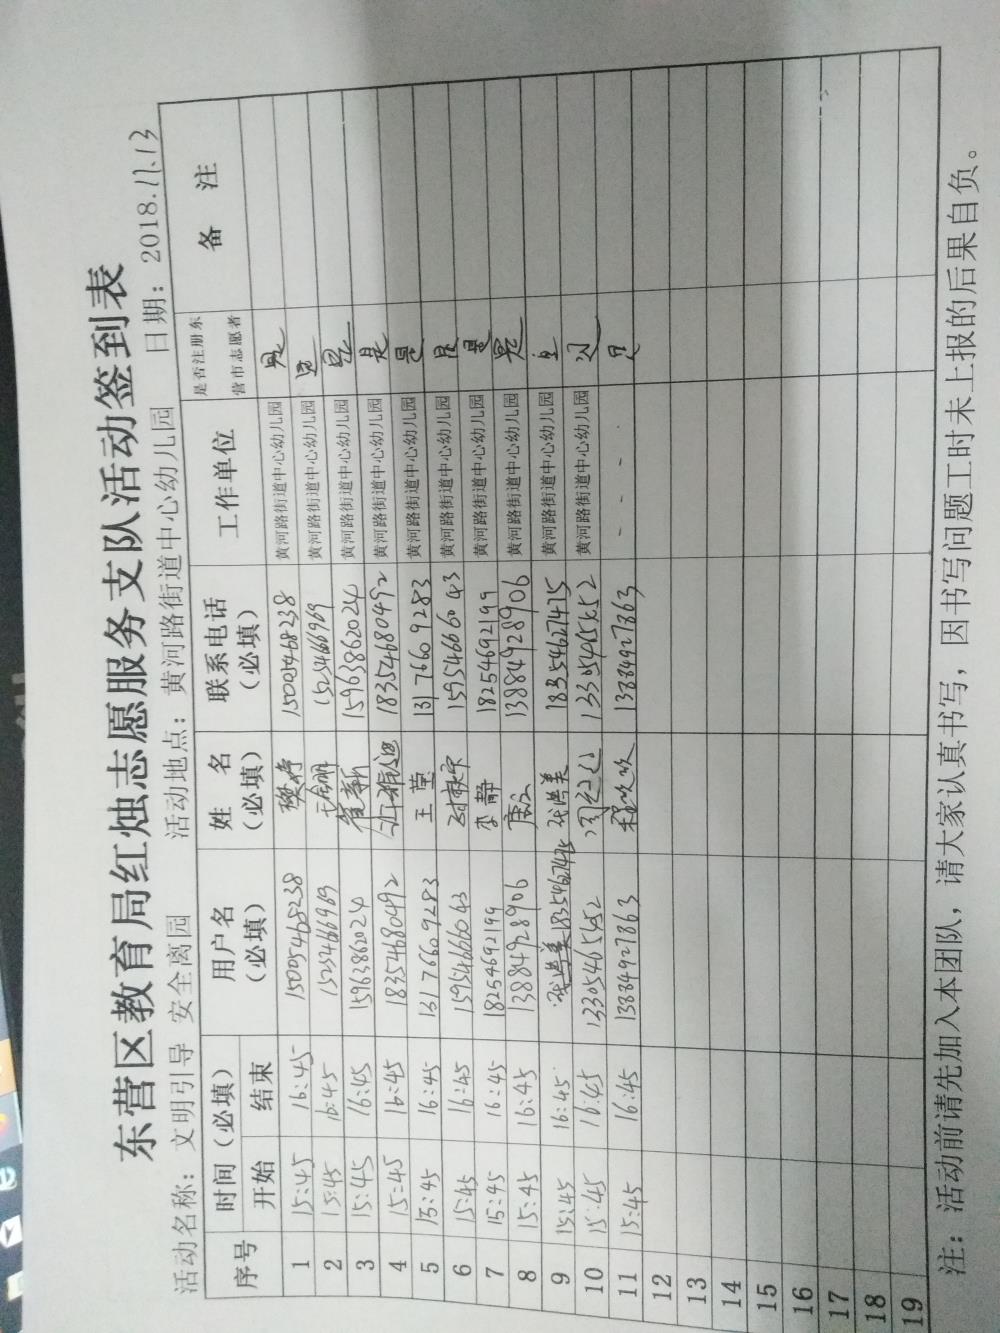 东营区教育局红烛志愿服务支队活动签到表
活动名称：文明引导 安全离园 活动地点：黄河路街道中心幼儿园 日期：2018.11.13
序号 时间（必填） 用户名（必填） 姓 名（必填） 联系电话（必填） 工作单位 是否注册东营市志愿者 备 注
开始 结束
1 15:45 16:45 15005468238 樊婷 15005468238 黄河路街道中心幼儿园 是
2 15:45 16:45 15254666969 15254666969 黄河路街道中心幼儿园 是
3 15:45 16:45 15963862024 崔新 15963862024 黄河路街道中心幼儿园 是
4 15:45 16:45 18354680492 18354680492 黄河路街道中心幼儿园 是
5 15:45 16:45 13176609283 王莹 13176609283 黄河路街道中心幼儿园 是
6 15:45 16:45 15954666043 15954666043 黄河路街道中心幼儿园 是
7 15:45 16:45 18254692199 李静 18254692199 黄河路街道中心幼儿园 是
8 15:45 16:45 13884928906 唐 13884928906 黄河路街道中心幼儿园 是
9 15:45 16:45 18354627475 张洪美 18354627475 黄河路街道中心幼儿园 是
10 15:45 16:45 13305465452 13305465452 黄河路街道中心幼儿园 是
11 15:45 16:45 13884927863 13884927863 - - - - 是
12
13
14
15
16
17
18
19
注：活动前请先加入本团队，请大家认真书写，因书写问题工时未上报的后果自负。